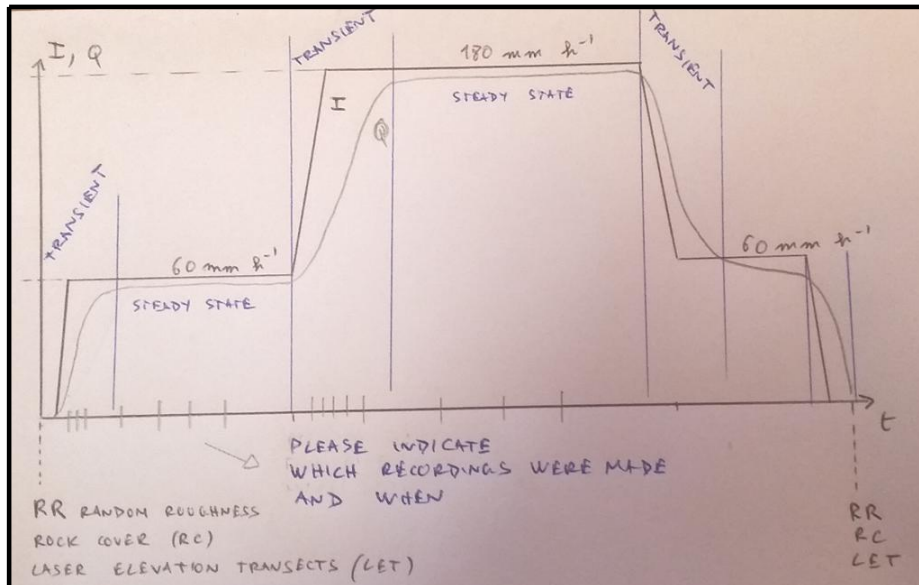 I, Q
TRANSIENT
180 mm h⁻¹
TRANSIENT
I
STEADY STATE
Q
TRANSIENT
60 mm h⁻¹
60 mm h⁻¹
STEADY STATE
t
PLEASE INDICATE
WHICH RECORDINGS WERE MADE
AND WHEN
RR RANDOM ROUGHNESS
ROCK COVER (RC)
LASER ELEVATION TRANSECTS (LET)
RR
RC
LET